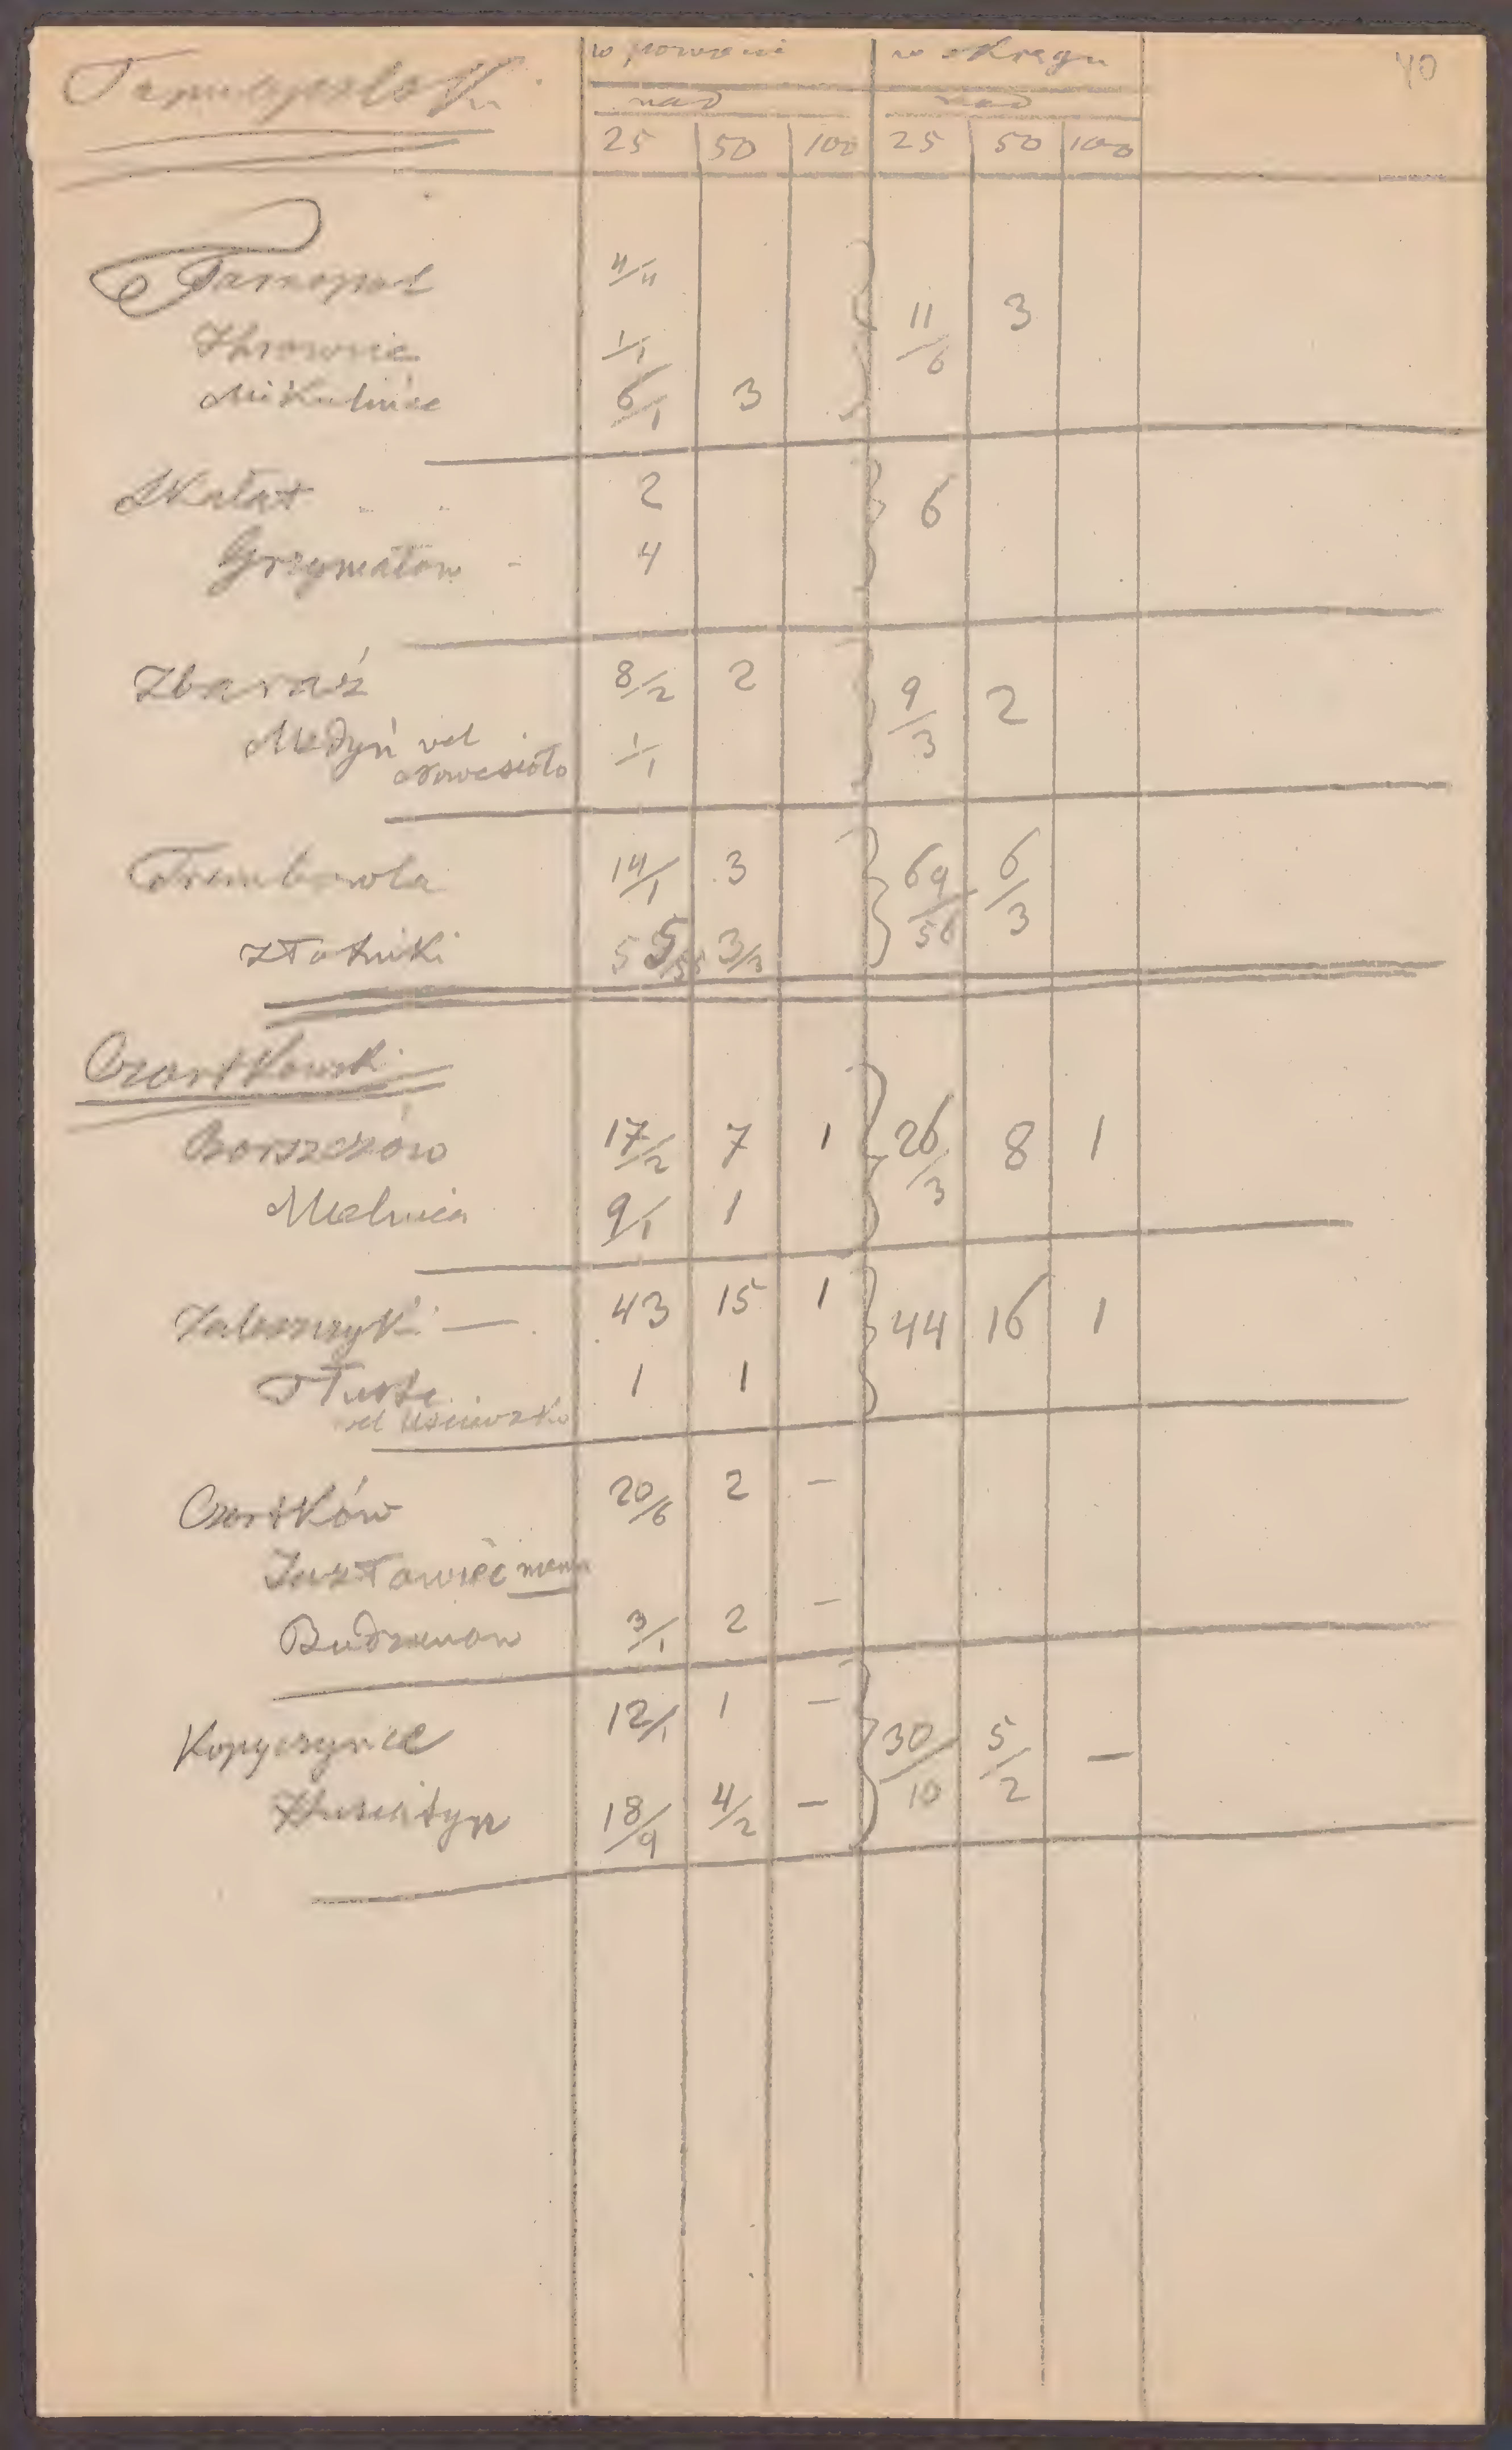 w powiecie w okręgu 40
nad nad
25 50 100 25 50 100
Tarnopol 4/4
11/6 3
1/1
Mikulińce 6/1 3
Skałat 2 6
Grzymałów - 4
Zbaraż 8/2 2 9/3 2
Medyń vel 1/1
Nowesioło
Trembowla 14/1 3 69/56 6/3
Złotniki 55/55 3/3
Czortkowski
Borszczów 17/2 7 1 26/3 8 1
Mielnica 9/1 1
Zaleszczyki — 43 15 1 44 16 1
Tłuste 1 1
vel Uścieczko
Czortków 20/6 2 —
Jazłowiec
Budzanów 3/1 2 —
Kopyczyńce 12/1 1 — 30/10 5/2 —
Husiatyn 18/9 4/2 —